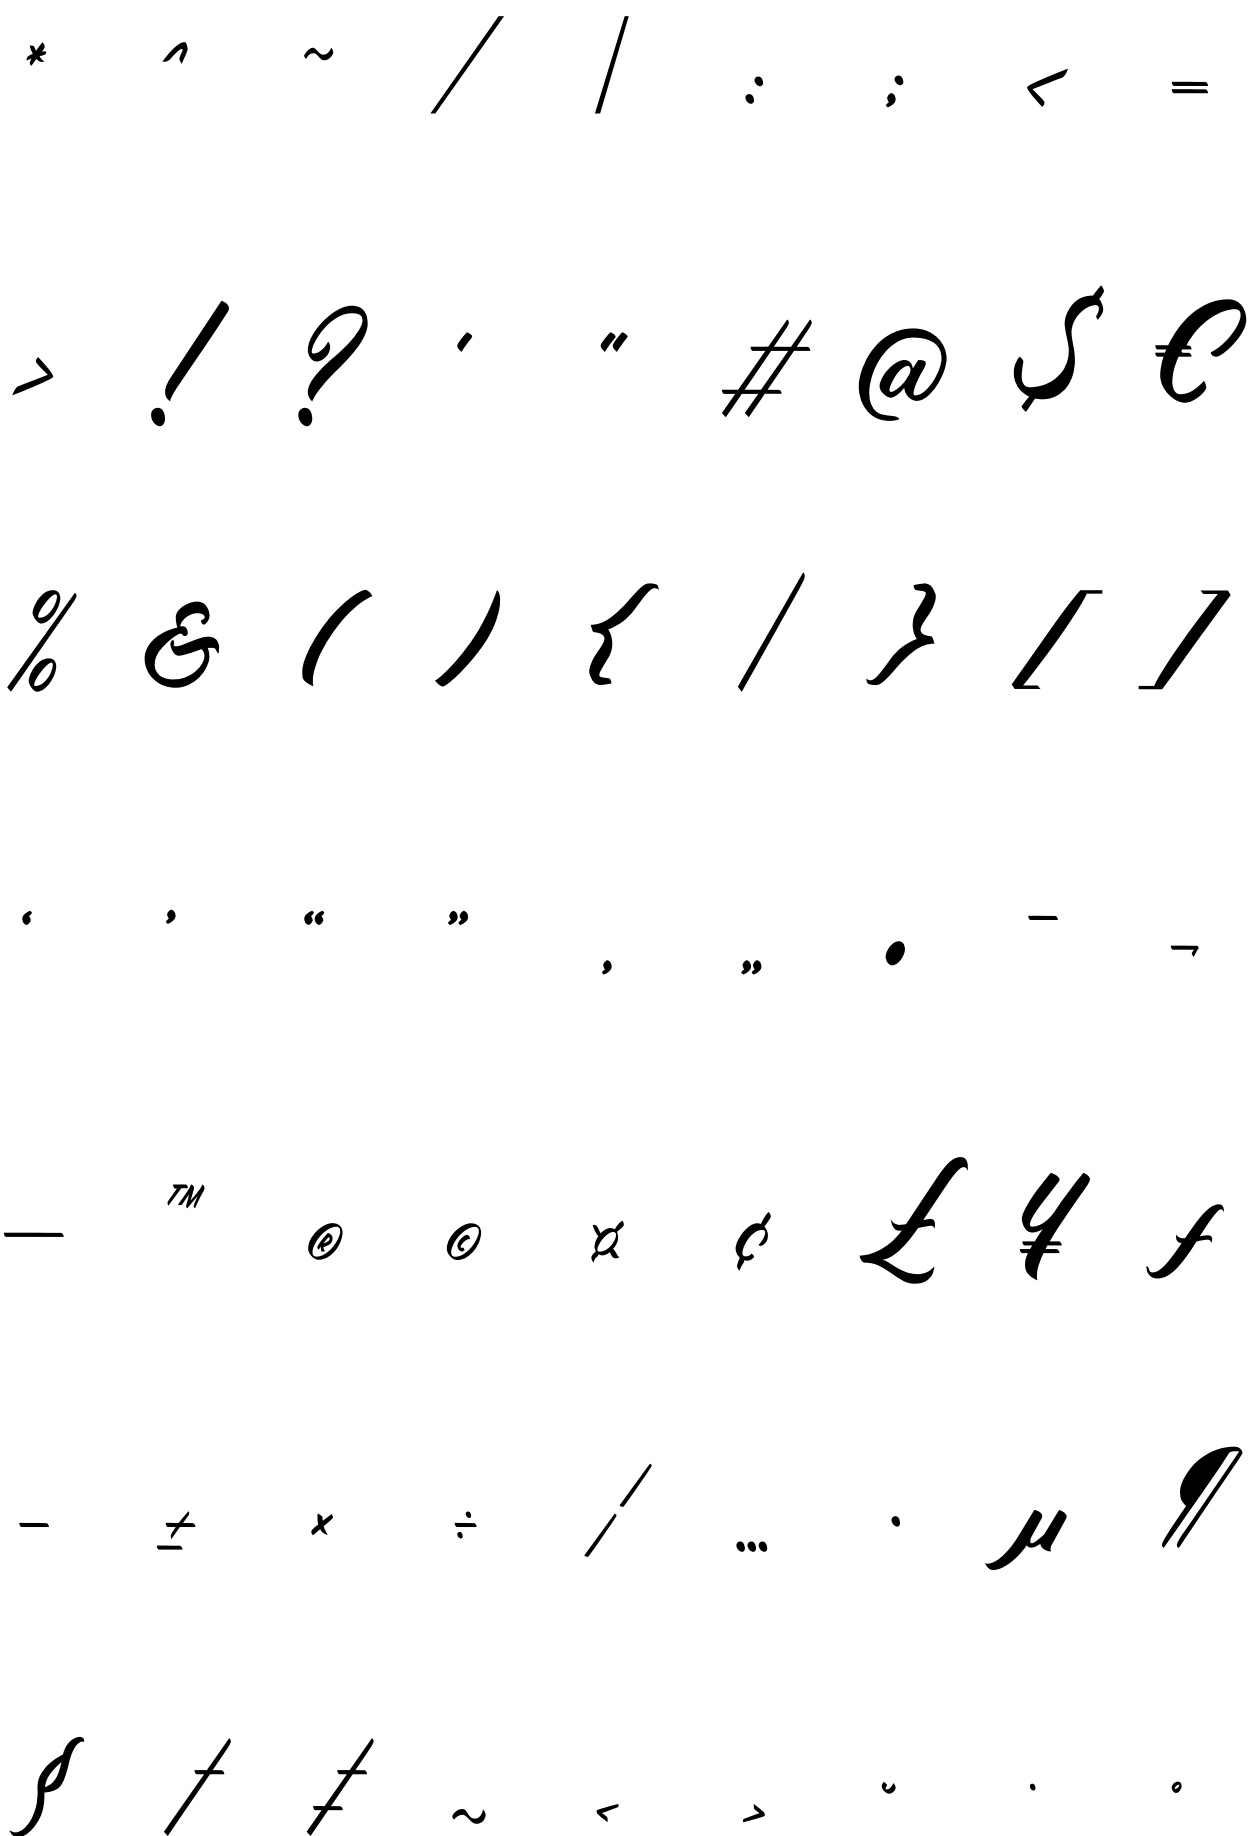 * ^ ~ / | : ; < =
> ! ? ' " # @ $ €
% & ( ) { / } [ ]
‘ ’ “ ” ‚ „ • – ¬
— ™ ® © ¤ ¢ £ ¥ ƒ
− ± × ÷ ¦ … · µ ¶
§ † ‡ ~ ‹ › ˘ ˙ ˚